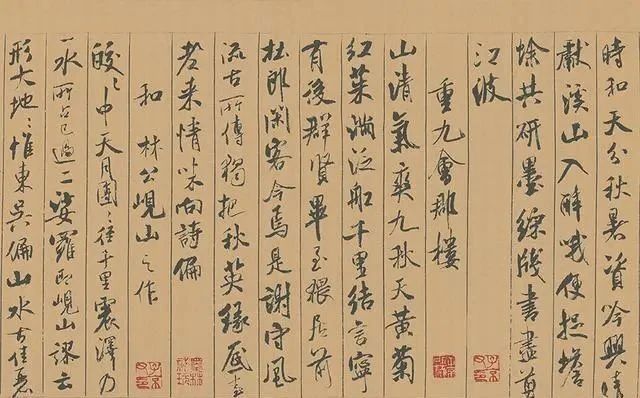 時和天分秋暑資吟興晴
獻溪山入醉哦便捉蟾
蜍共研墨綵牋書盡剪
江波
重九會郡樓
山清氣爽九秋天黃菊
紅茱滿泛船千里結言寧
有後群賢畢至猥居前
杜郎閑客今焉是謝守風
流古所傳獨把秋英緣底事
老來情味向詩偏
和林公峴山之作
皎〻中天月團〻徑千里震澤乃
一水所占已過二娑羅即峴山謬云
形大地〻惟東吳偏山水古佳麗